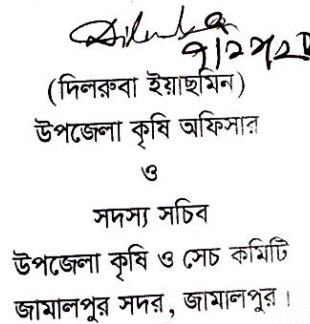 (দিলরুবা ইয়াছমিন)
উপজেলা কৃষি অফিসার
ও
সদস্য সচিব
উপজেলা কৃষি ও সেচ কমিটি
জামালপুর সদর, জামালপুর।